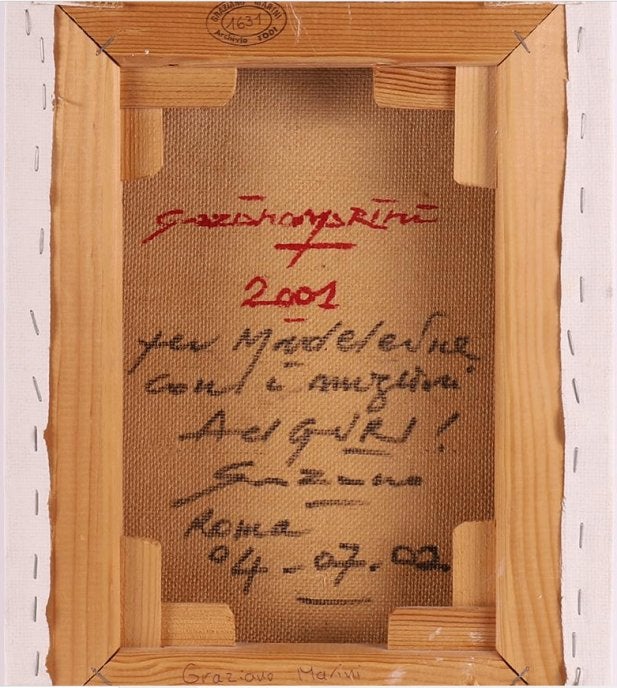 GRAZIANO MARINI
1631
Archivio 2001
Graziano Marini
2001
per Madeleine
con i migliori
AUGURI!
Graziano
Roma
04-07.02.
Graziano Marini